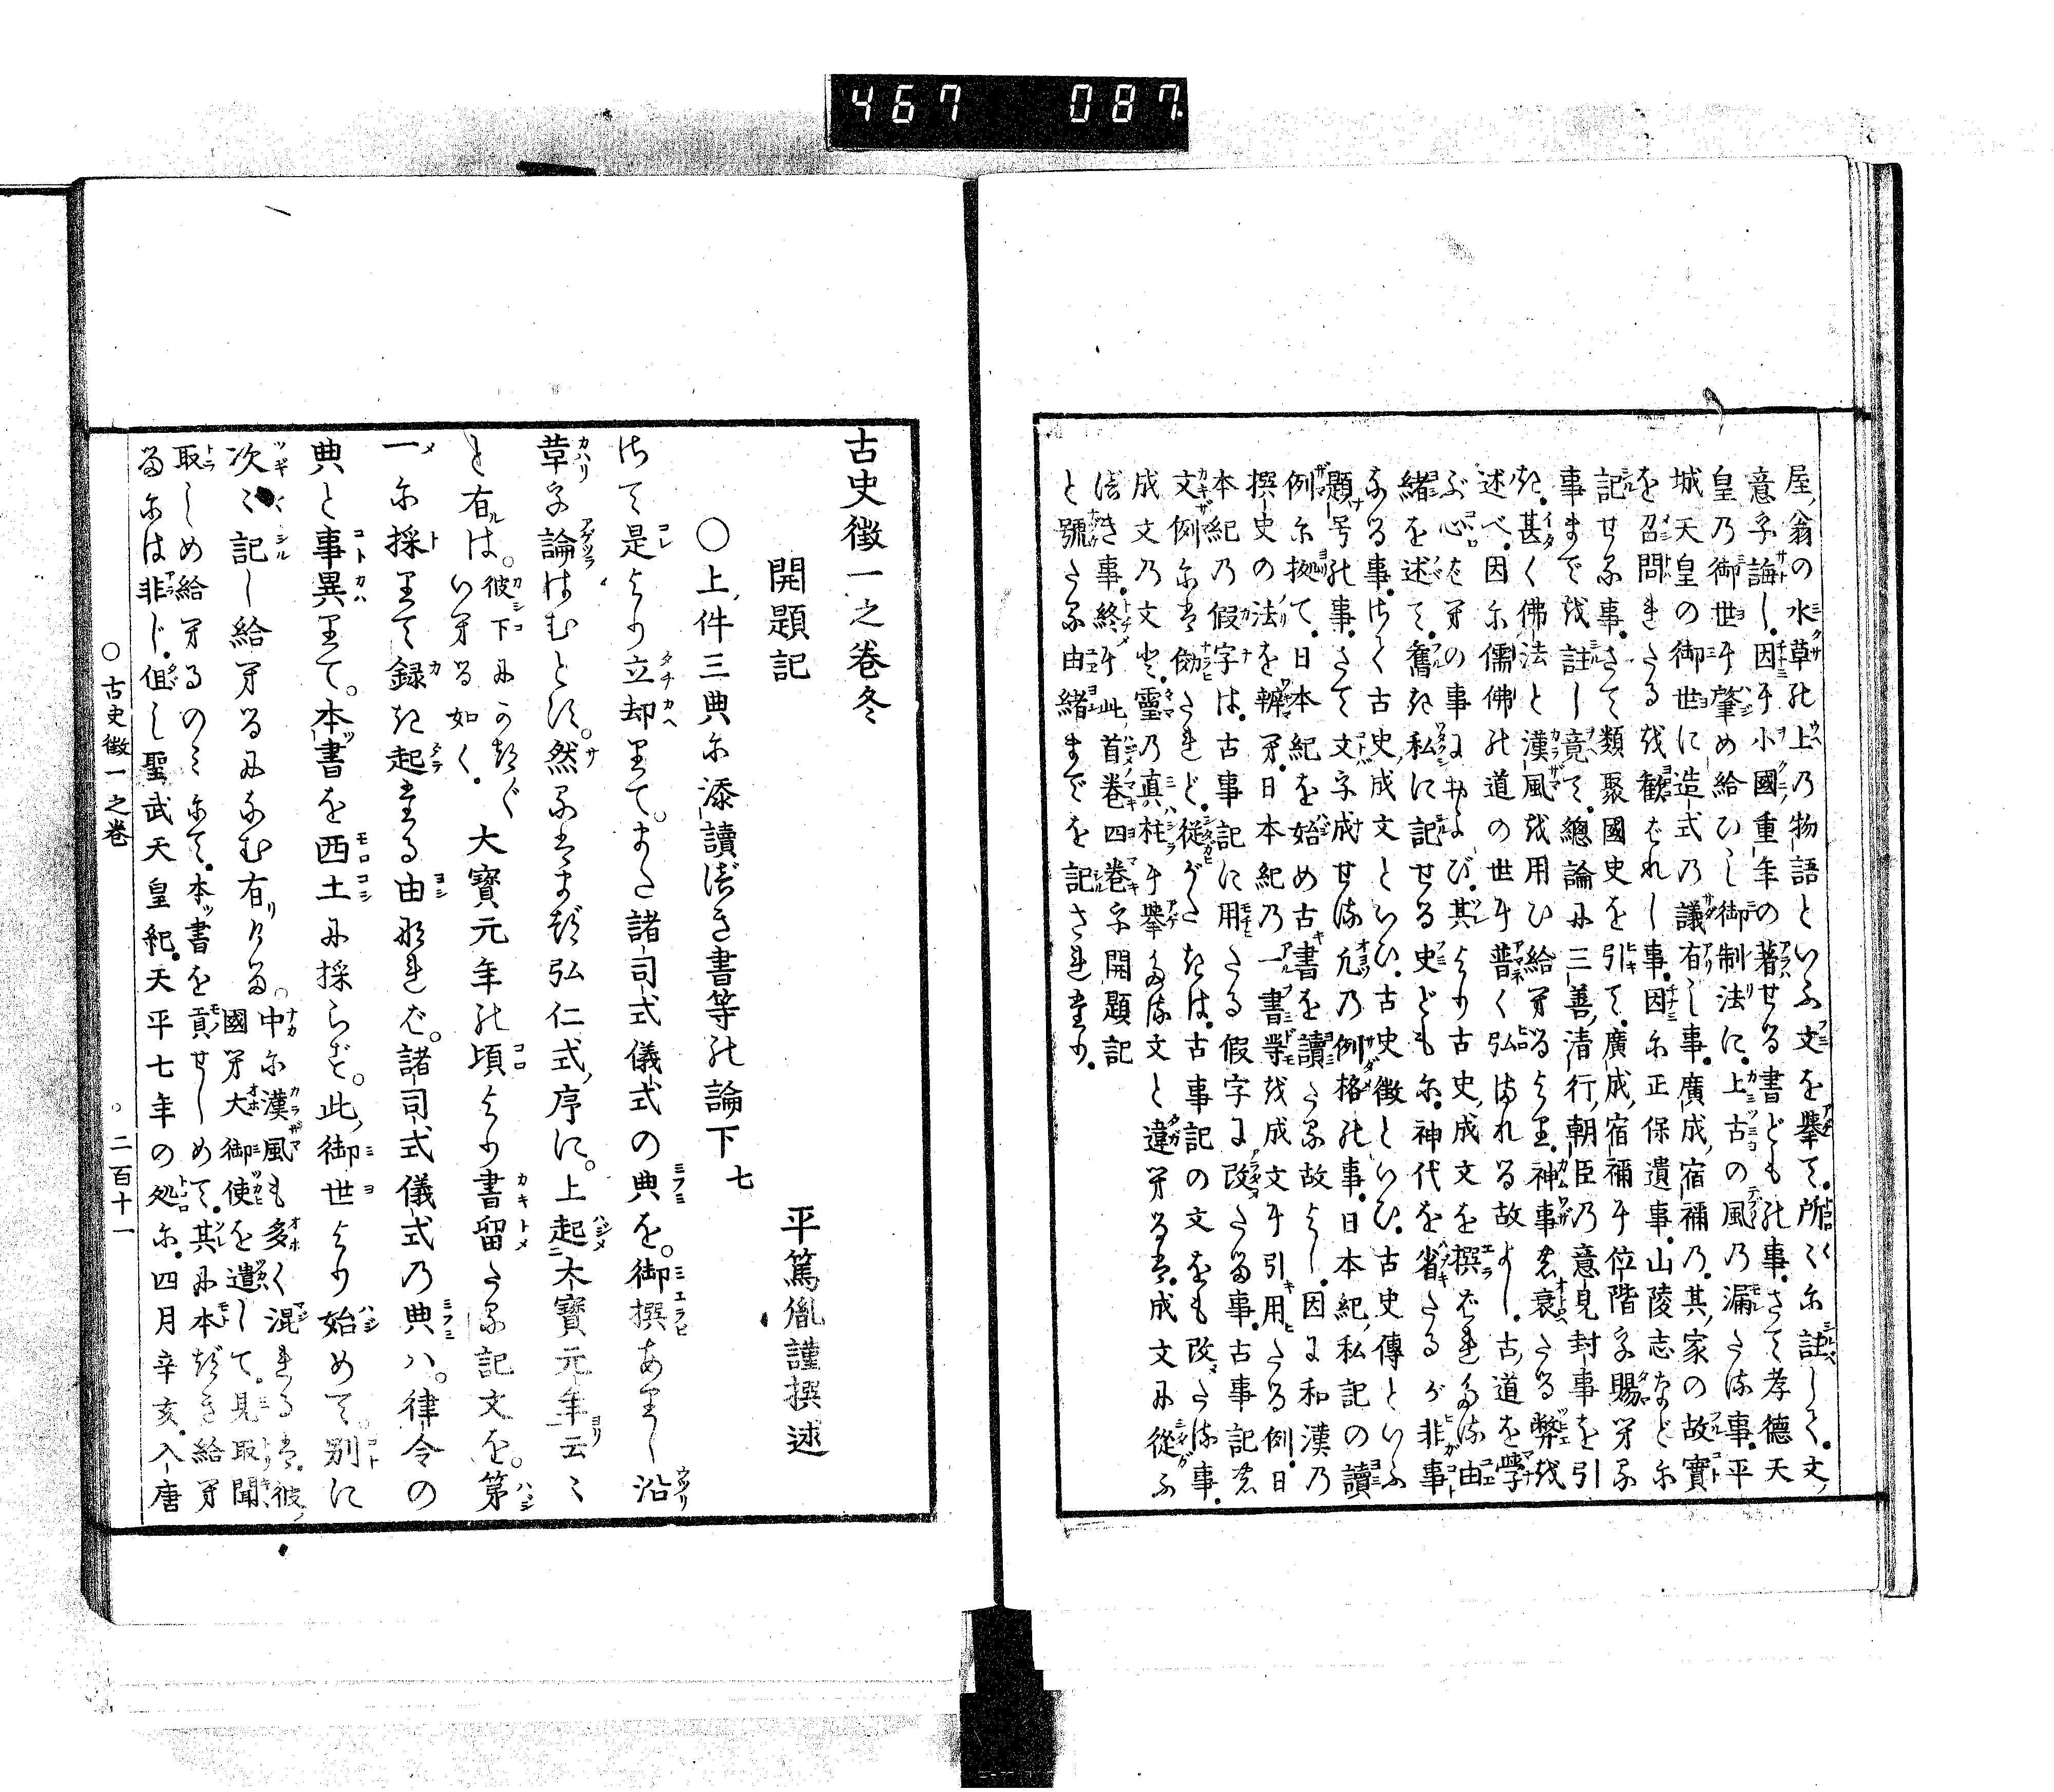 467 087
屋翁の水草の上乃物語といふ文を擧て所々に註して文
意を誨し因に小國重年の著せる書どもの事さて孝德天
皇乃御世に肇め給ひし御制法に上古の風乃漏たる事平
城天皇の御世に造式乃議有し事廣成宿禰乃其家の故實
を召問れたるを歡ばれし事因に正保遺事山陵志などに
記せる事さて類聚國史を引て廣成宿禰に位階を賜へる
事までを註し竟て總論に三善清行朝臣乃意見封事を引
き甚く佛法と漢風を用ひ給へるより神事衰たる弊を
述べ因に儒佛の道の世に普く弘まれる故よし古道を學
ぶ心をへの事におよび其より古史成文を撰ばれたる由
緒を述て舊き私に記せる史どもに神代を省きたるが非事
なる事さて古史成文といひ古史徵といひ古史傳といふ
題号の事さて文字成せる凡乃例格の事日本紀私記の讀
例に拠て日本紀を始め古書を讀たる故よし因に和漢乃
撰史の法を辨へ日本紀乃一書等を成文に引用たる例日
本紀乃假字は古事記に用たる假字に改たる事古事記
文例には傚たれど從がたきは古事記の文をも改たる事
成文乃文と靈乃真柱に擧たる文と違へるは成文に從ふ
べき事終に此首卷四卷を開題記
と號たる由緒までを記されたり
古史徵一之卷冬
開題記
平篤胤謹撰述
〇上件三典に添讀べき書等の論下七
さて是より立却りてまた諸司式儀式の典を御撰ありし沿
革を論はむとす然るはまづ弘仁式序に上起大寶元年云々
と有は彼下にいへる如く大寶元年の頃より書留たる記文を第
一に採りて録き起たる由なれば諸司式儀式乃典ハ律令の
典と事異りて本書を西土に採らず此御世より始めて別に
次々記し給へるになむ有ける中に漢風も多く混れるは彼
國へ大御使を遣して見取聞
取しめ給へるのみにて本書を貢せしめて其に本づき給へ
るには非じ但し聖武天皇紀天平七年の処に四月辛亥入唐
〇古史徵一之卷
〇二百十一